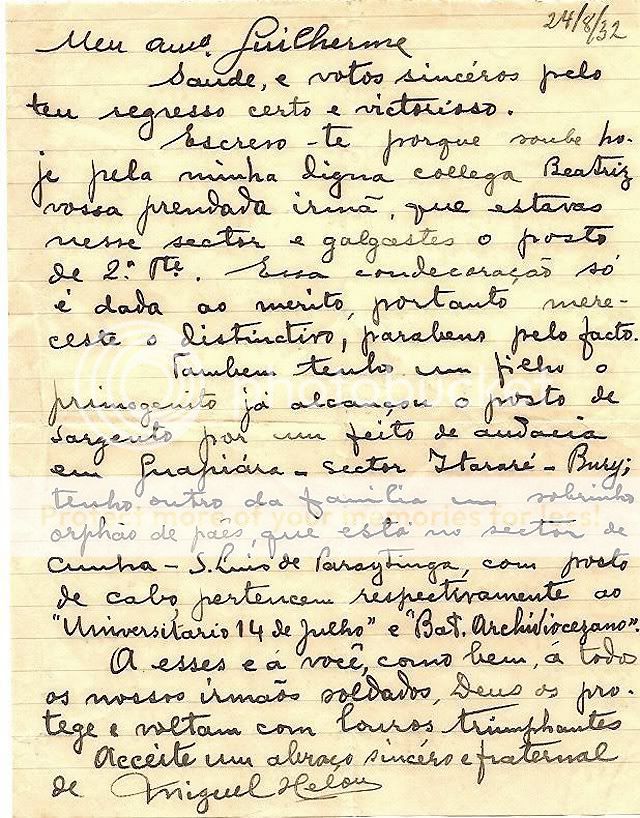 24/8/32
Meu amº Guilherme
Saude, e votos sincéros pelo
teu regresso certo e victorioso.
Escrevo-te porque soube ho-
je pela minha digna collega Beatriz
vossa prendada irmã, que estavas
nesse sector e galgastes o posto
de 2º Tte. Essa condecoração só
é dada ao merito, portanto mere-
ceste o distinctivo, parabens pelo facto.
Tambem tenho um filho o
primogenito já alcançou o posto de
sargento por um feito de audacia
em Guapiára - sector Itararé - Bury;
tenho outro da familia um sobrinho
orphão de páes, que está no sector de
Cunha - S. Luis de Paraytinga, com posto
de cabo, pertencem respectivamente ao
"Universitario 14 de Julho" e "Bat. Archidiocezano".
A esses e á você, como bem, á todo
os nossos irmãos soldados, Deus os pro-
tege e voltam com louros triumphantes
Acceite um abraço sincéro e fraternal
de Miguel Helou
photobucket
Protect more of your memories for less!